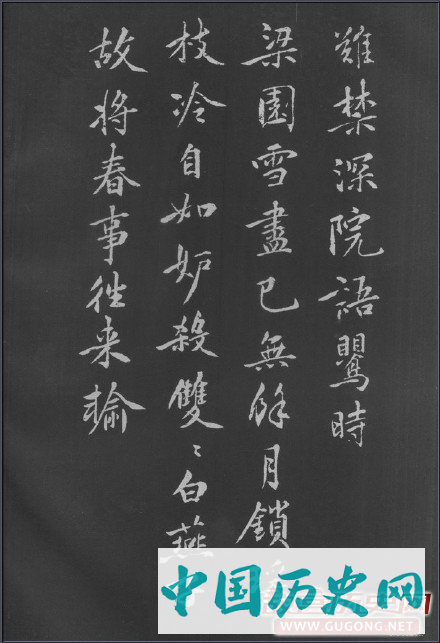 難禁深院語鶯時
梁園雪盡已無餘月鎖
枝冷自如妒殺雙〻白燕
故將春事往来輸
中国历史网
WWW.GUGONG.NET